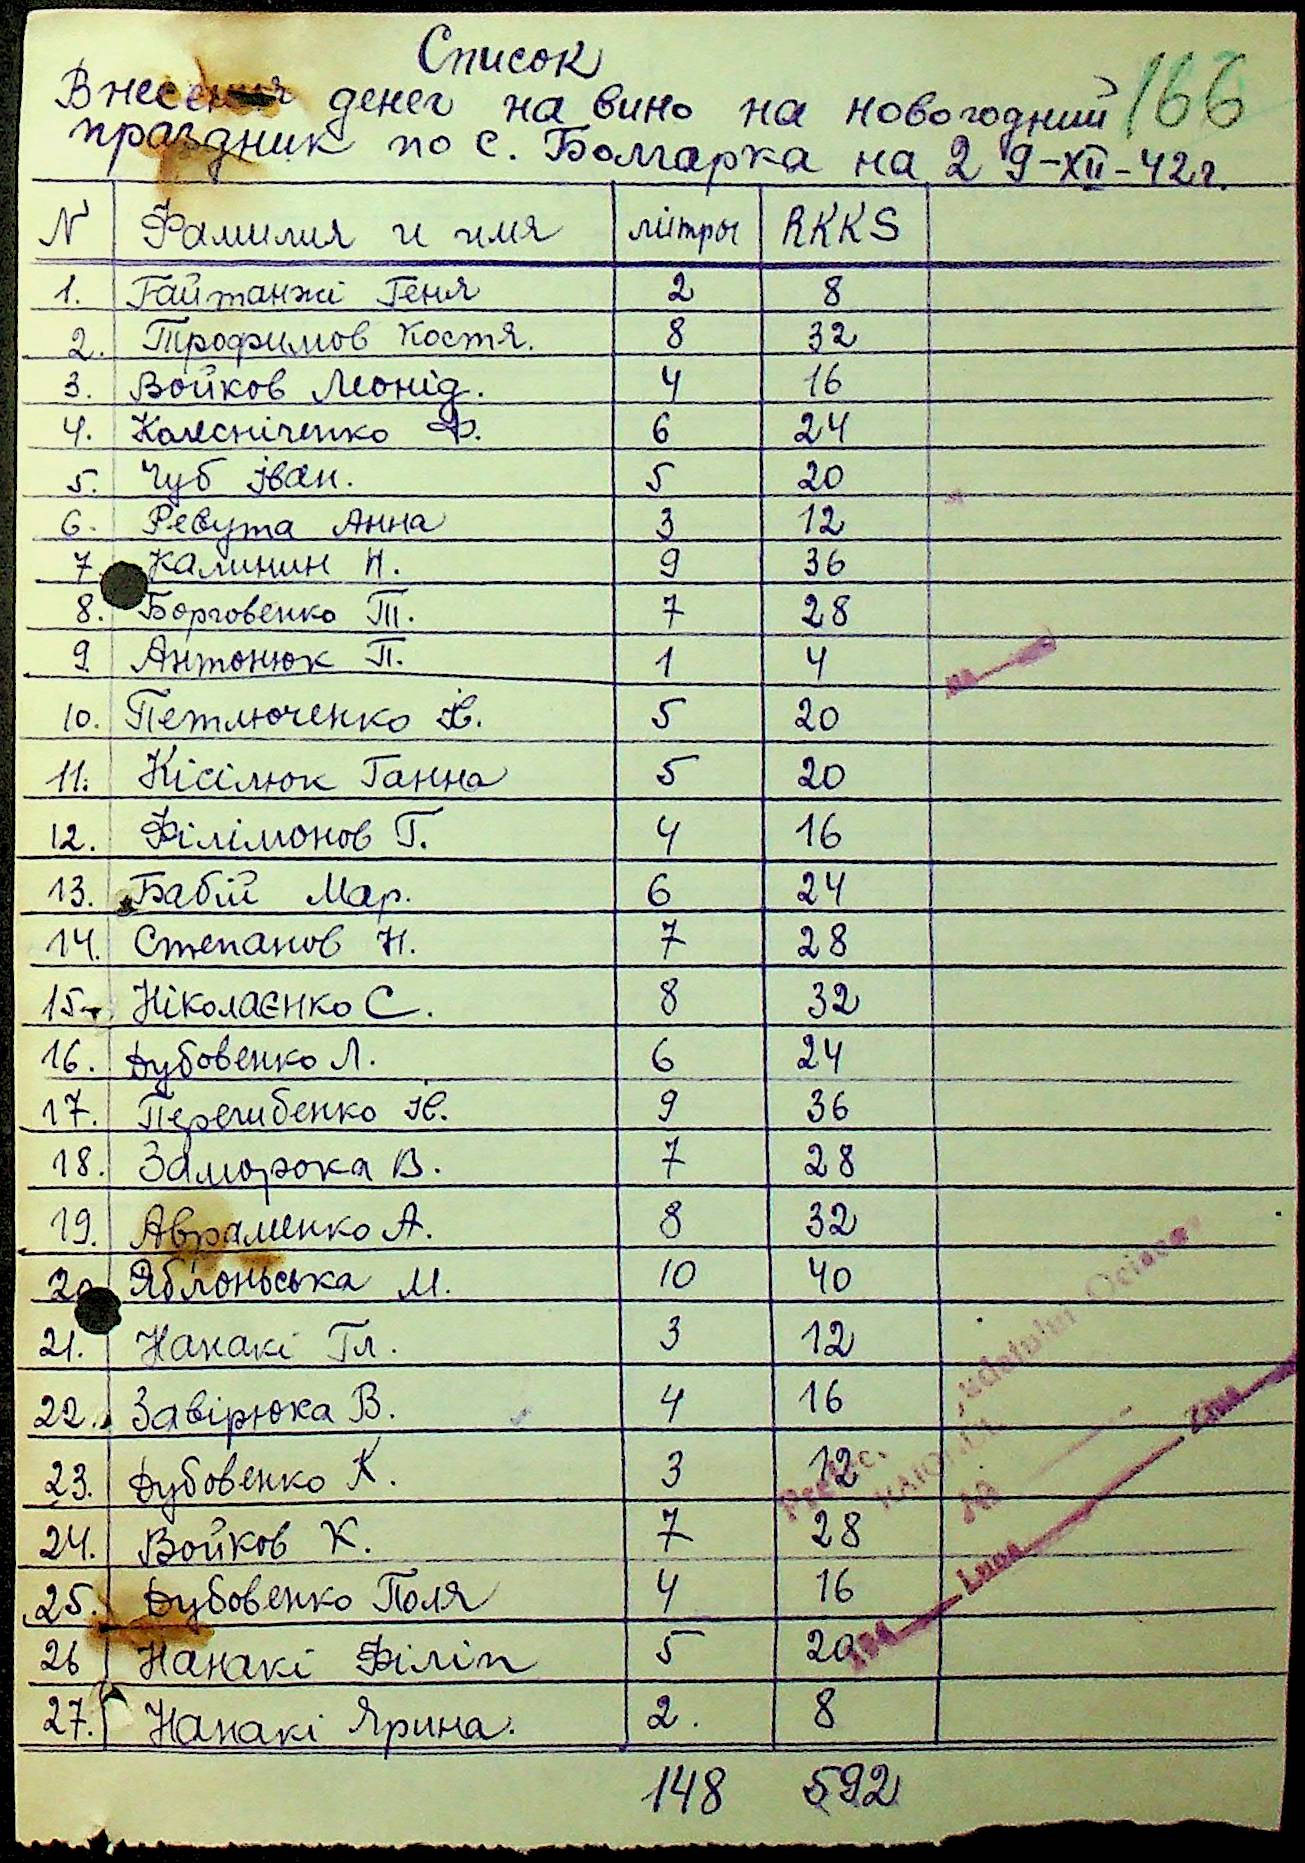 Список
166
Внесения денег на вино на новогодний
праздник по с. Болгарка на 29-XII-42г.
N Фамилия и имя литры RKKS
1. Гайтанжі Геня 2 8
2. Трофимов Костя. 8 32
3. Войков Леонід. 4 16
4. Колесніченко Ф. 6 24
5. Чуб Іван. 5 20
6. Ревута Анна 3 12
7. Калинин Н. 9 36
8. Борговенко Т. 7 28
9. Антонюк П. 1 4
10. Петлюченко Н. 5 20
11. Кісілюк Ганна 5 20
12. Філімонов Г. 4 16
13. Бабій Мар. 6 24
14. Степанов Н. 7 28
15. Ніколаєнко С. 8 32
16. Дубовенко Л. 6 24
17. Перегибенко 9 36
18. Заморока В. 7 28
19. Авраменко А. 8 32
20 Яблоньська М. 10 40
21. Нанакі Гл. 3 12
22. Завірюка В. 4 16
23. Дубовенко К. 3 12
24. Войков К. 7 28
25. Дубовенко Поля 4 16
26 Нанакі Філіп 5 20
27. Нанакі Ярина. 2. 8
148 592
Luna
Ziua